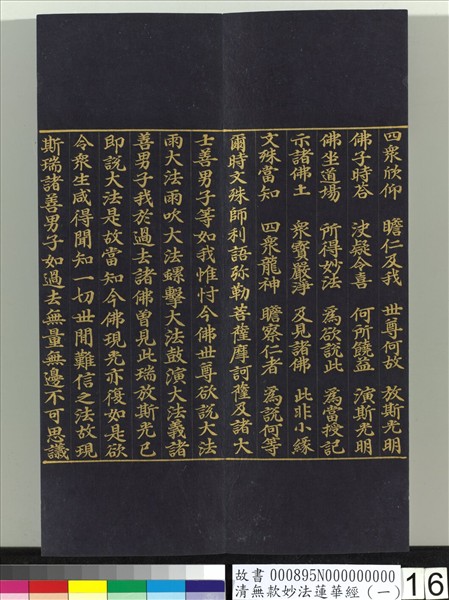 四衆欣仰　瞻仁及我　世尊何故　放斯光明
佛子時荅　決疑令喜　何所饒益　演斯光明
佛坐道場　所得妙法　為欲說此　為當授記
示諸佛土　衆寶嚴淨　及見諸佛　此非小緣
文殊當知　四衆龍神　瞻察仁者　為說何等
爾時文殊師利語弥勒菩薩摩訶薩及諸大
士善男子等如我惟忖今佛世尊欲說大法
雨大法雨吹大法螺擊大法鼓演大法義諸
善男子我於過去諸佛曾見此瑞放斯光已
即說大法是故當知今佛現光亦復如是欲
令衆生咸得聞知一切世間難信之法故現
斯瑞諸善男子如過去無量無邊不可思議
故書 000895N000000000
清無款妙法蓮華經(一)
16